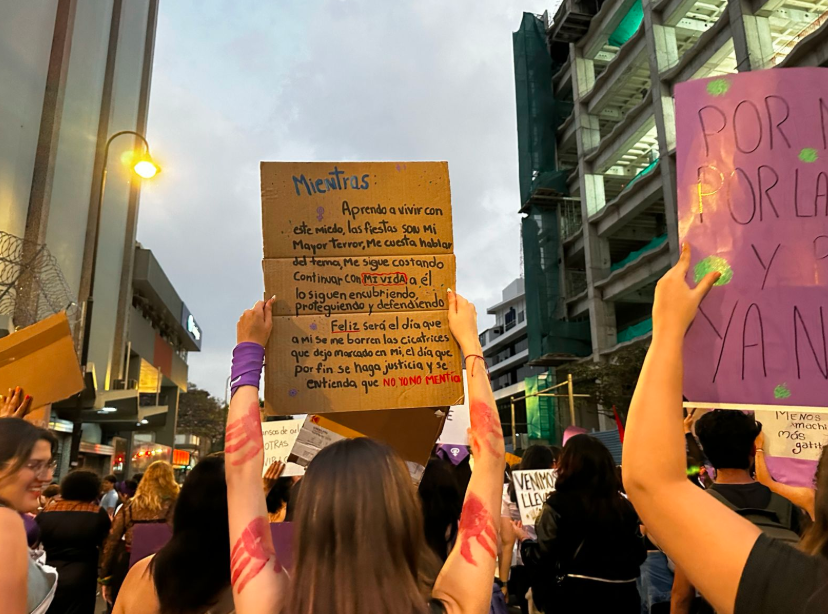 Mientras
Aprendo a vivir con
este miedo, las fiestas son mi
Mayor terror, Me cuesta hablar
del tema, Me sigue costando
Continuar con MI VIDA a él
lo siguen encubriendo,
protegiendo y defendiendo
Feliz será el día que
a mi se me borren las cicatrices
que dejo marcado en mi, el día que
por fin se haga justicia y se
entienda que NO YO NO MENTIA
POR
POR LA
Y
YA
OTRAS
VENIMOS
MENOS
machi
más
gatit